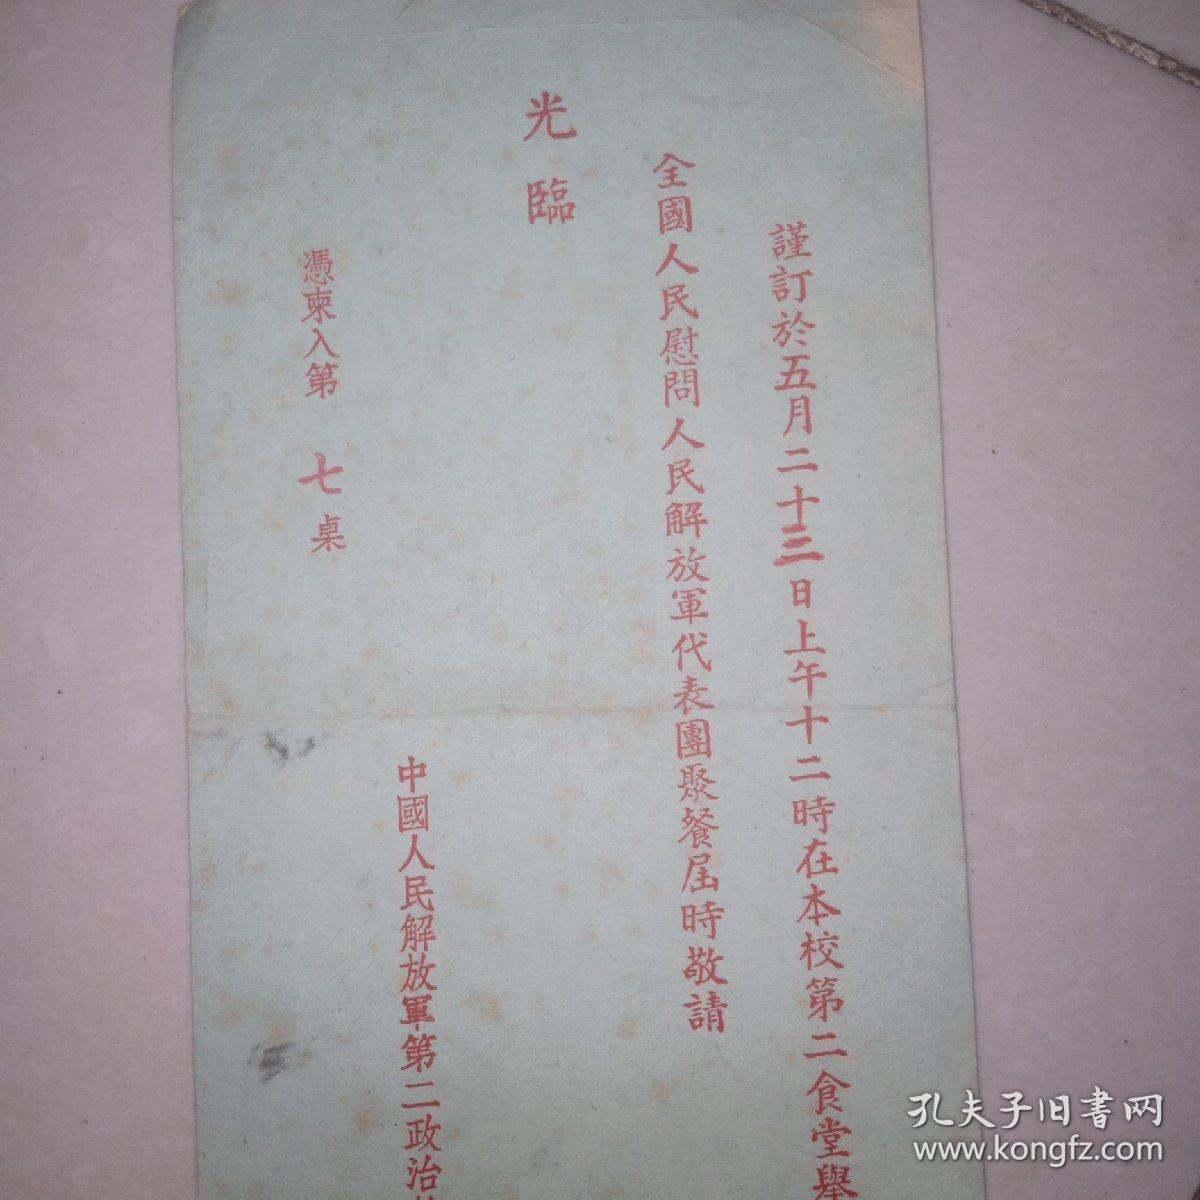 謹訂於五月二十三日上午十二時在本校第二食堂舉
全國人民慰問人民解放軍代表團聚餐屆時敬請
光臨
中國人民解放軍第二政治
憑柬入第 七 桌
孔夫子旧书网
www.kongfz.com